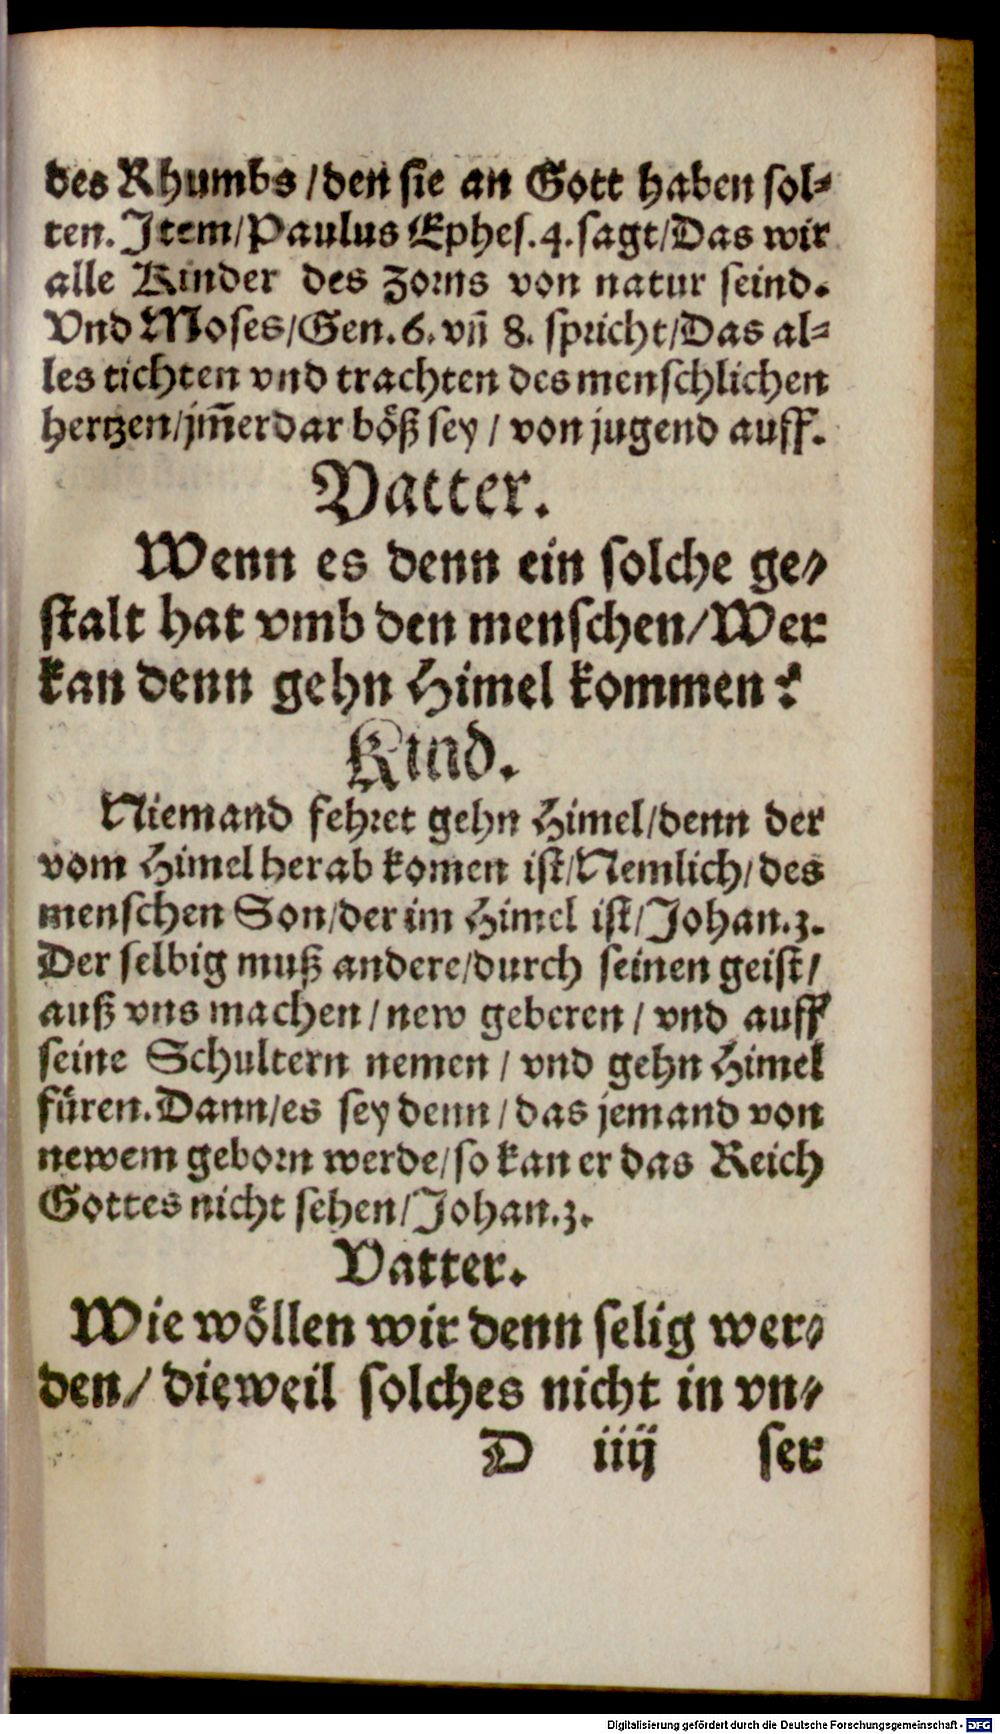 des Rhumbs / den sie an Gott haben sol⸗
ten. Item / Paulus Ephes. 4. sagt / Das wir
alle Kinder des zorns von natur seind.
Vnd Moses / Gen. 6. vñ 8. spricht / Das al⸗
les tichten vnd trachten des menschlichen
hertzen / jm̃erdar böß sey / von jugend auff.
Vatter.
Wenn es denn ein solche ge⸗
stalt hat vmb den menschen / Wer
kan denn gehn Himel kommen?
Kind.
Niemand fehret gehn Himel / denn der
vom Himel herab komen ist / Nemlich / des
menschen Son / der im Himel ist / Johan. 3.
Der selbig muß andere / durch seinen geist /
auß vns machen / new geberen / vnd auff
seine Schultern nemen / vnd gehn Himel
füren. Dann / es sey denn / das jemand von
newem geborn werde / so kan er das Reich
Gottes nicht sehen / Johan. 3.
Vatter.
Wie wöllen wir denn selig wer⸗
den / dieweil solches nicht in vn⸗
D iiij ser
Digitalisierung gefördert durch die Deutsche Forschungsgemeinschaft - DFG